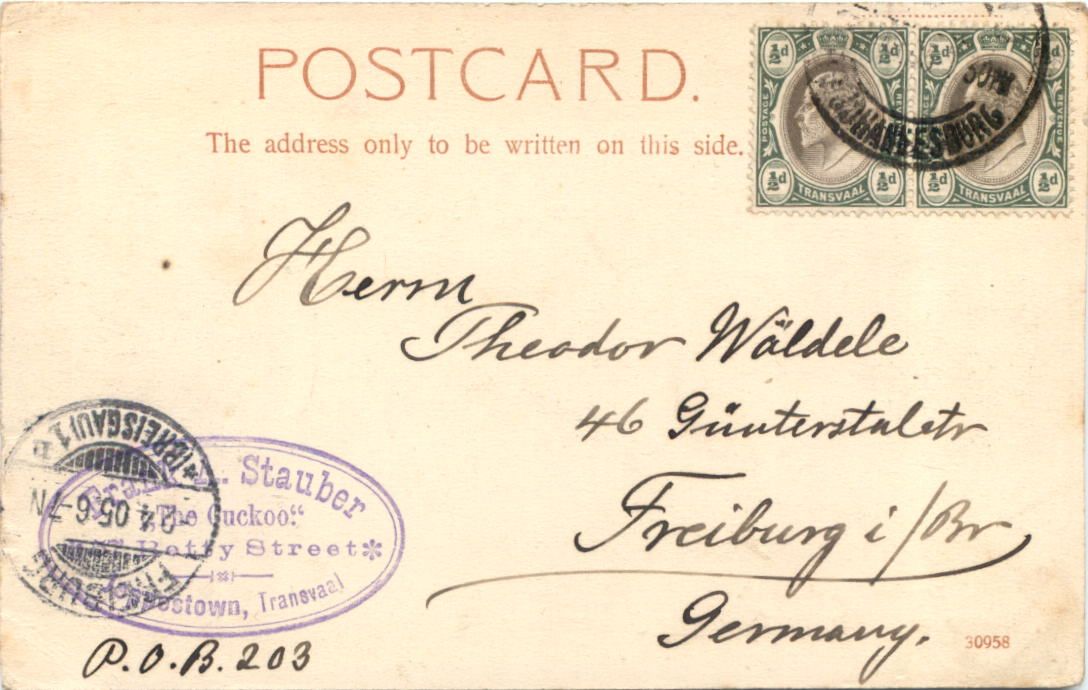 POSTCARD.
The address only to be written on this side.
½d ½d ½d ½d
POSTAGE REVENUE POSTAGE REVENUE
½d ½d ½d ½d
TRANSVAAL TRANSVAAL
JOHANNESBURG
Herrn
Theodor Wäldele
46 Günterstalstr
Freiburg i/Br
Germany.
(BREISGAU) 1
9.4.05.6-7 N
FREIBURG
Stauber
„The Cuckoo.“
Betty Street
Jeppestown, Transvaal
P.O.B. 203
30958